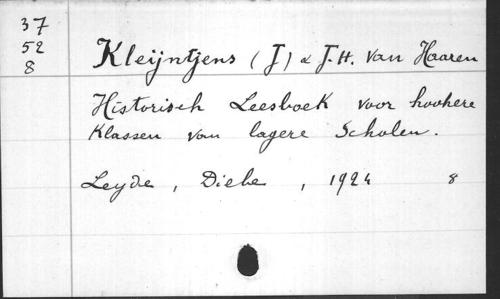 37
52
8
Kleijntjens (J) & J.H. Van Haaren
Historisch Leesboek voor hoohere
Klassen van lagere Scholen.
Leyde, Diebe, 1924 8